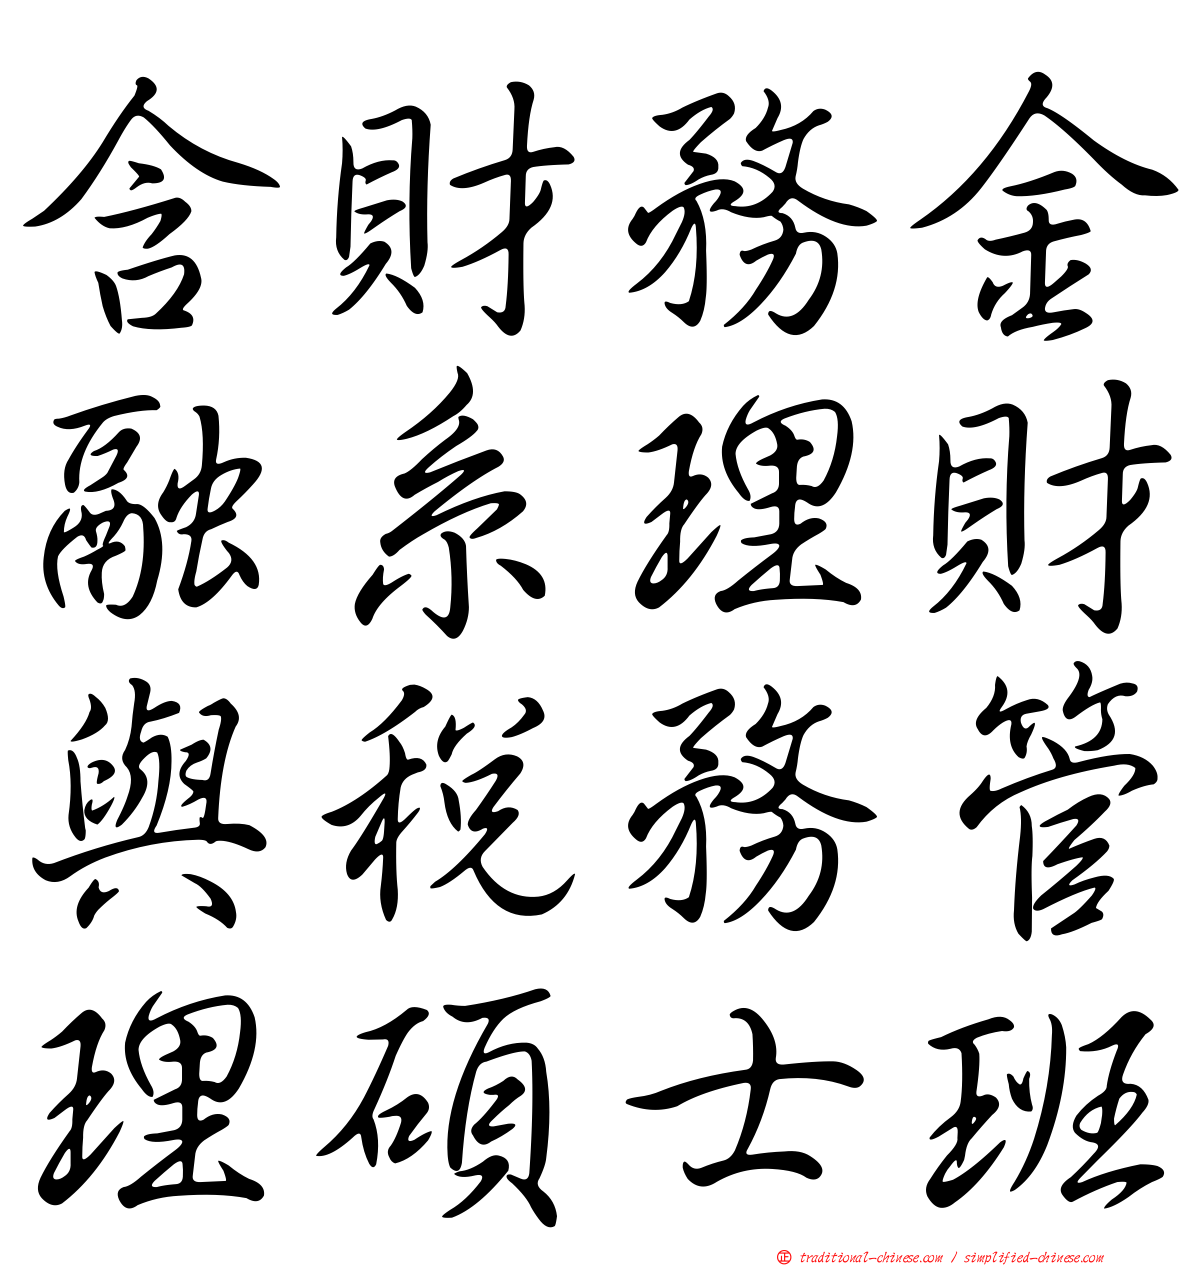 含財務金
融系理財
與稅務管
理碩士班
正 traditional-chinese.com / simplified-chinese.com